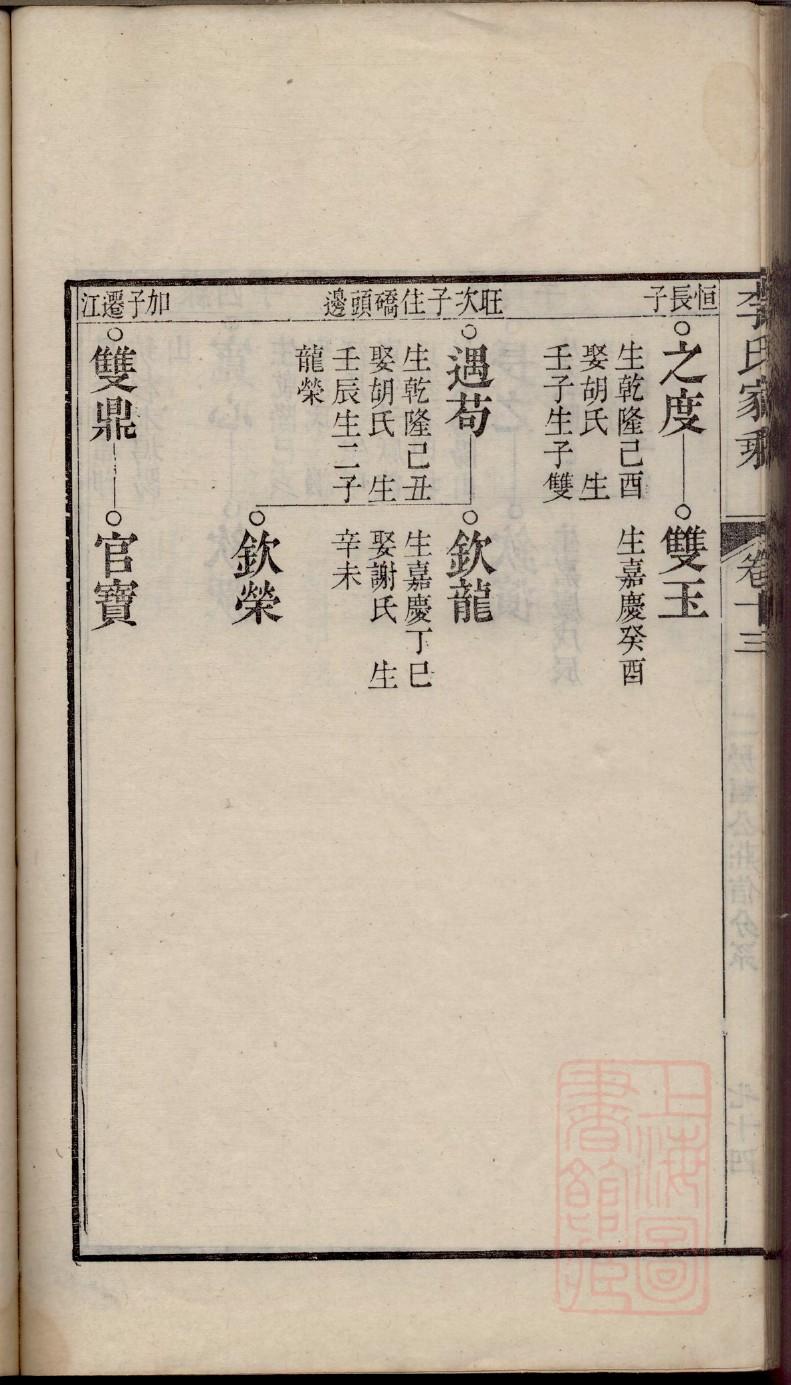 李氏家乘
卷十三
恒長子
之度
生乾隆己酉
娶胡氏 生
壬子生子雙
雙玉
生嘉慶癸酉
旺次子住礄頭邊
遇苟
生乾隆己丑
娶胡氏 生
壬辰生二子
龍榮
欽龍
生嘉慶丁巳
娶謝氏 生
辛未
欽榮
加子遷江
雙鼎
官寶
上海圖
書館藏